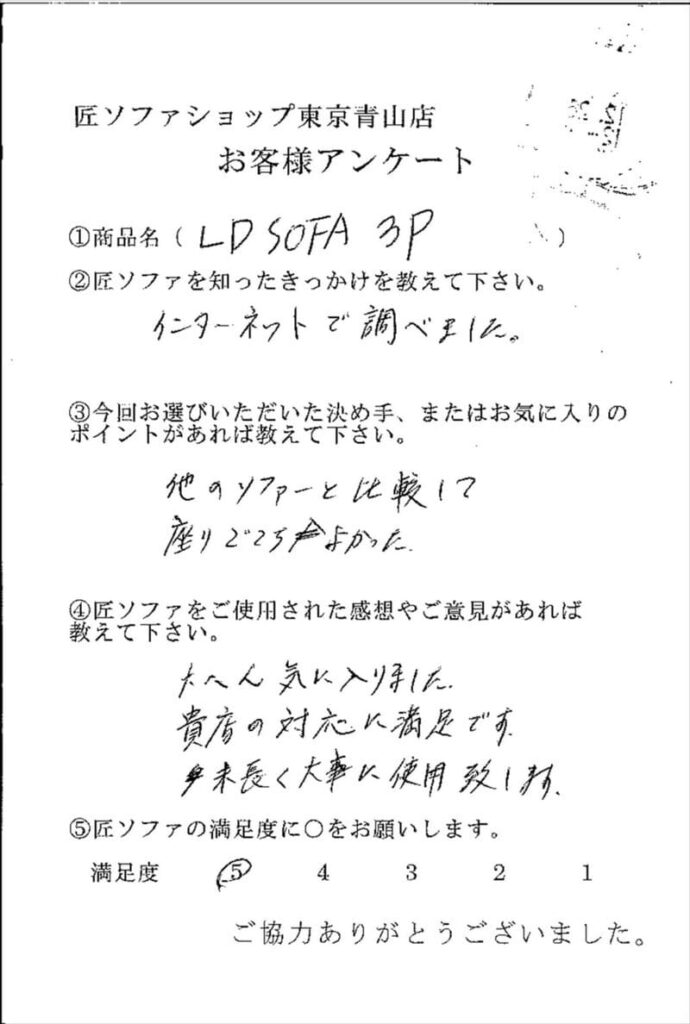 匠ソファショップ東京青山店
お客様アンケート
①商品名（ LD SOFA 3P ）
②匠ソファを知ったきっかけを教えて下さい。
インターネットで調べました。
③今回お選びいただいた決め手、またはお気に入りの
ポイントがあれば教えて下さい。
他のソファーと比較して
座りごこちよかった.
④匠ソファをご使用された感想やご意見があれば
教えて下さい。
大へん気に入りました.
貴店の対応に満足です.
末長く大事に使用致します.
⑤匠ソファの満足度に〇をお願いします。
満足度 5 4 3 2 1
ご協力ありがとうございました。